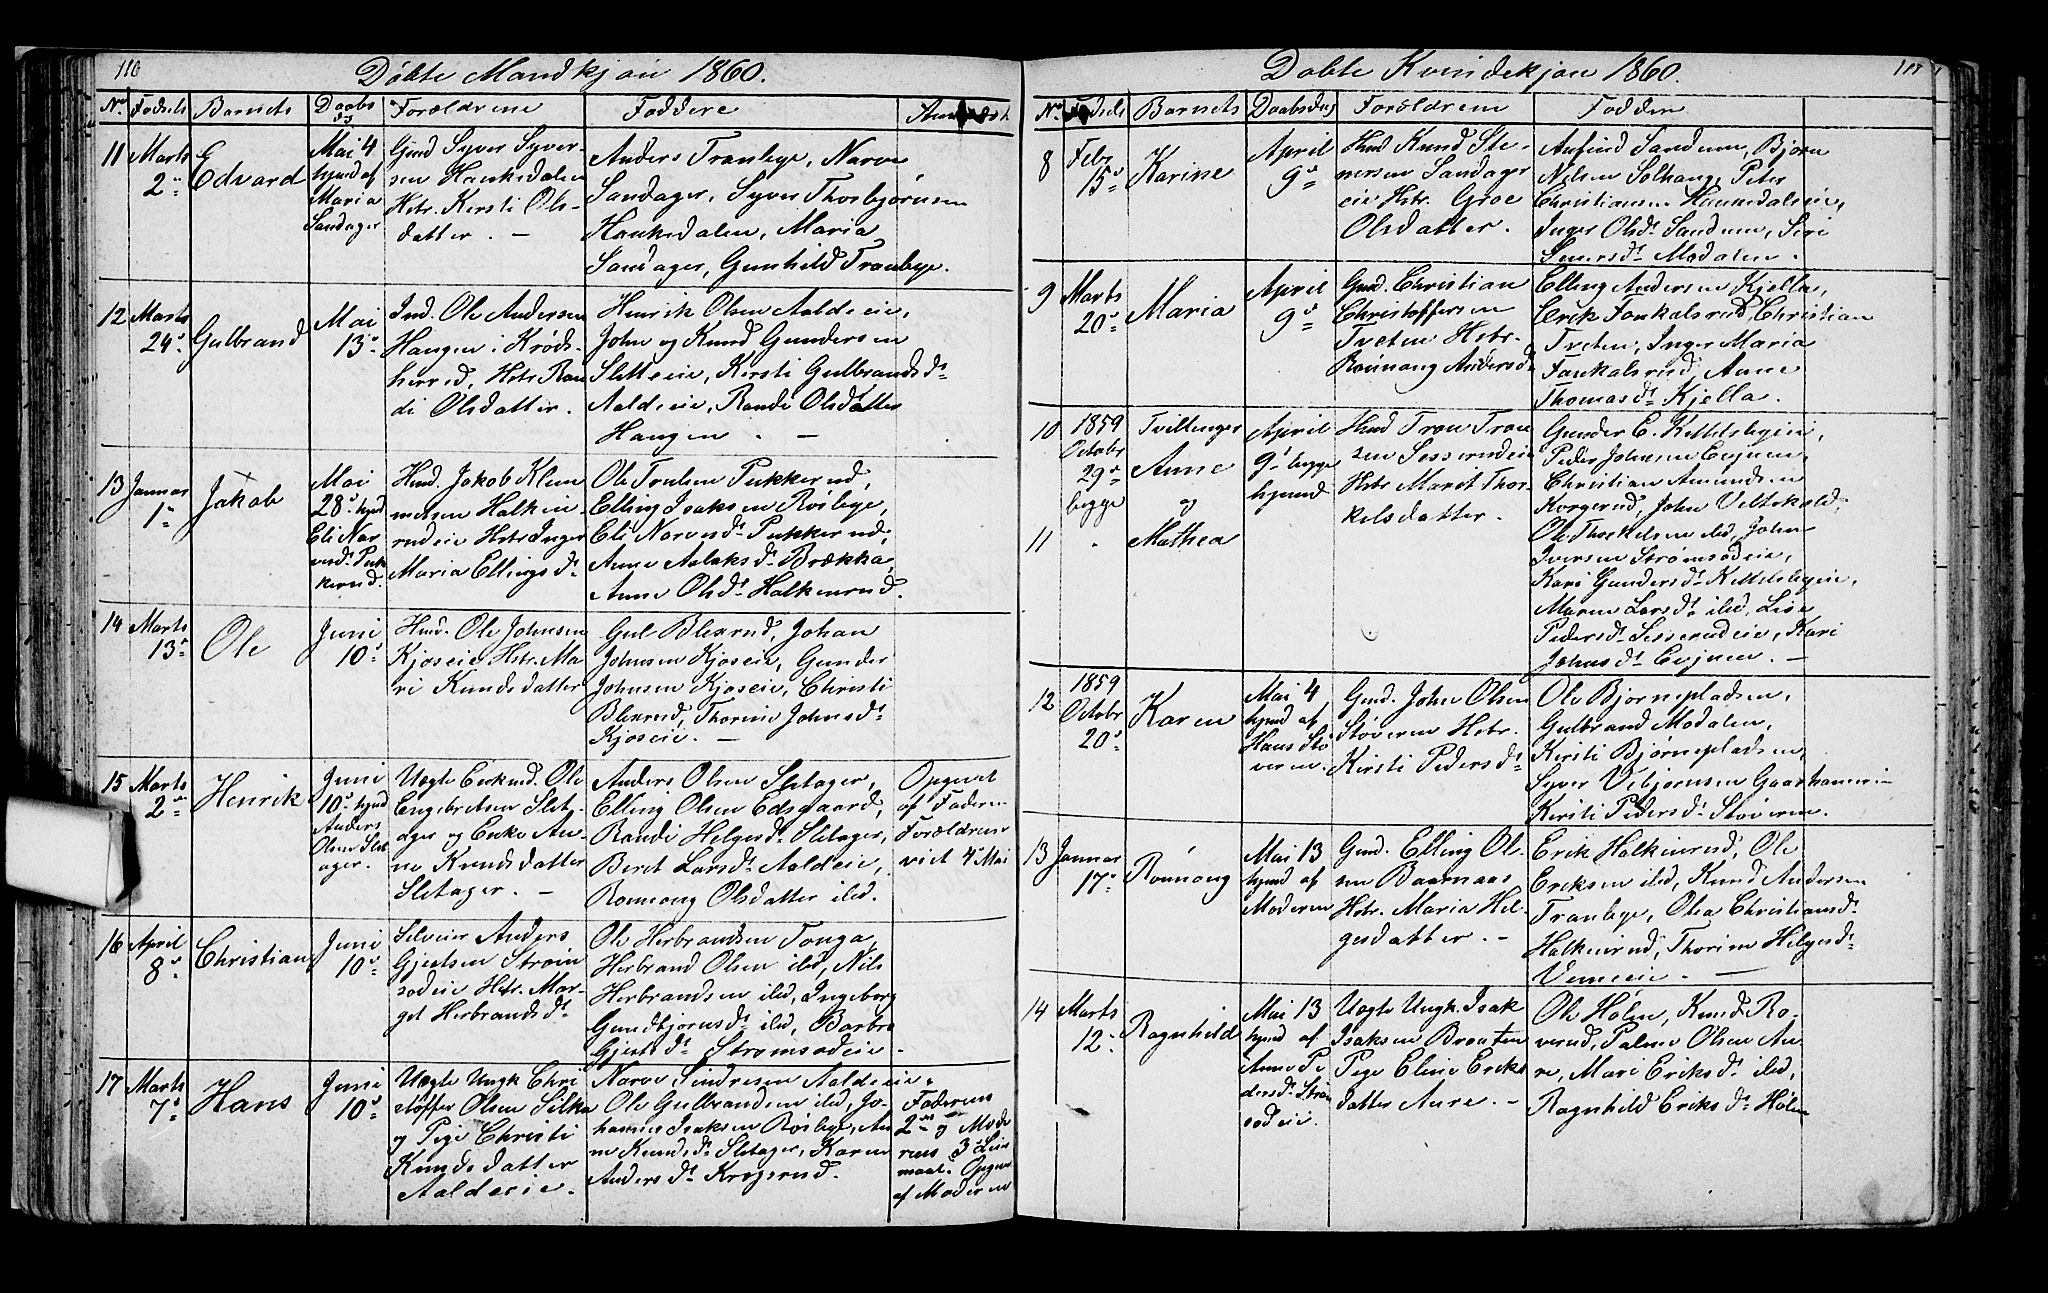 116
Döbte Mandkjøn 1860.
No Fødsels Barnets Daabs dg Forældrene Faddere Anmærk.
11 Marts 2 Edvard
Mai 4 hjmd af Maria Sandager
Gmd Syver Syver-
sen Haukedalen
Hstr. Kersti Ols-
datter. -
Anders Tranbye, Narve
Sandager, Syver Thorbjørnsen
Haukedalen, Maria
Sandager, Gunhild Tranbye.
12 Marts 24 Gulbrand
Mai 13
Ind. Ole Andersen
Haugen i Krøds-
herred, Hstr. Ran
di Olsdatter.
Henrik Olsen Aaldeie,
John og Knud Gundersen
Sletteeie, Kersti Gulbrandsdr
Aaldeie, Randi Olsdatter
Haugen. -
13 Januar 1 Jakob
Mai 28 hjmd Eli Nar vesdr Puk kerud.
Hmd. Jakob Klem
metsen Halkin-
rudeie Hstr Inger
Maria Ellingsdr
Ole Trulsen Pukkerud,
Elling Isaksen Rösbye,
Eli Narvesdr Pukkerud,
Anne Aslaksdr Brækka,
Anne Olsdr Halkinrud.
14 Marts 13 Ole
Juni 10
Hmd. Ole Johnsen
Kjoseie Hstr. Ma
ri Knudsdatter
Gul Blexrud, Johan
Johnsen Kjoseie, Gunder
Johnsen Kjoseie, Christi
Blexrud, Thorine Johnsdr
Kjoseie. -
15 Marts 2 Henrik
Juni 10 hjmd Anders Olsen Slet ager.
Uægte Enkmd. Ole
Engebretsen Slet-
ager og Enke An
ne Knudsdatter
Sletager. -
Anders Olsen Sletager,
Elling Olsen Edsgaard,
Randi Helgesdr Sletager,
Beret Larsdr Aaldeie,
Ronnong Olsdatter ibd.
Opgivet
af Faderen
Forældrene
viet 4 Mai
16 April 8 Christian
Juni 10
Selveier Anders
Gjertsen Ström
sodeie Hstr. Mar-
get Herbrandsdr
Ole Herbrandsen Tonga,
Herbrand Olsen ibd, Nils
Herbrandsen ibd, Ingeborg
Gundbjornsdr ibd, Barbro
Gjertsdr Stromsodeie.
17 Marts 7 Hans
Juni 10
Uægte Ungk Chri
stoffer Olsen Silka
og Pige Christi
Knudsdatter
Aaldeeie.
Narve Sindresen Aaldeeie,
Ole Gulbrandsen ibd, Jo-
hannes Isaksen Rösbye, An
ne Knudsdr Sletager, Karen
Andersdr Krogsrud.
Faderens
2 og Mode
rens 3 Leier
maal. Opgivet
af Moderen
117
Dobte Kvindekjøn 1860.
No Fødsels Barnets Daabsdag Forældrene Faddere
8 Febr 15 Karine
April 9
Hmd Knud Ste-
nersen Sandager
eie Hstr. Groe
Olsdatter.
Anfind Sandum, Bjørn
Nelsen Solhaug, Peter
Christiansen Haukedalseie,
Inger Olsdr Sandum, Siri
Modalen.
9 Marts 20 Maria
April 9
Gmd. Christian
Christoffersen
Tveten Hstr.
Rönnong Andersdr
Elling Andersen Kjella,
Erik Funkalsrud, Christian
Tveten, Inger Maria
Funkalsrud, Anne
Thomasdr Kjella.
10 1859 Octobr 29 begge
Tvillinger
Anne
og
11 Mathea
April 9 begge hjemd
Hmd Tron Tron
sen Sesserudeie
Hstr Marit Thor-
kelsdatter.
Gunder E. Kittilsbyeie,
Peder Johnsen Evjuen,
Christian Amundsen
Korgerud, John Veltskald,
Ole Thorkelsen ibd, John
Iversen Strømsodeie,
Kari Gundersdr Kittelsbyeie,
Maren Larsdr ibd, Lise
Pedersdr Sesserudeie, Kari
Johnsdr Evjuen. -
12 1859 Octobr 20 Karen
Mai 4 hjemd af Hans Stö veren.
Gmd. John Olsen
Støveren Hstr.
Kirsti Pedersdr
Ole Bjørnepladsen,
Gulbrand Modalen,
Kirsti Bjørnepladsen,
Syver Vebjørnsen Gaarhameri
Kirsti Pedersdr Støveren.
13 Januar 17 Rönnong
Mai 13 hjemd af Moderen
Gmd. Elling Ol-
sen Baarnaas
Hstr. Maria Hel-
gesdatter. -
Erik Halkinrud, Ole
Eriksen ibd, Knud Andersen
Tranbye, Olea Christiansdr
Halkinrud, Thorine Helgesdr
Vemeie. -
14 Marts 12 Ragnhild
Mai 13 hjemd af Anne Pe dersdr Ström sodeie.
Uægte Ungk. Isak
Isaksen Braaten
Pige Eline Eriks
datter Aure. -
Ole Hólm, Knud Ro-
verud, Palme Olsen Au
re, Mari Eriksdr ibd,
Ragnhild Eriksdr Holm